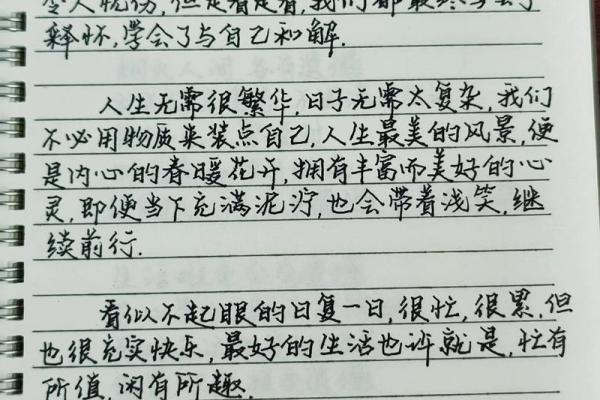 令人忧伤,但走着走着,我们都最终学会了
释怀,学会了与自己和解.
人生无需很繁华,日子无需太复杂,我们
不必用物质来装点自己,人生最美的风景,便
是内心的春暖花开,拥有丰富而美好的心
灵,即便当下充满泥泞,也会带着浅笑,继
续前行.
看似不起眼的日复一日,很忙,很累,但
也很充实快乐,最好的生活也许就是,忙有
所值,闲有所趣.